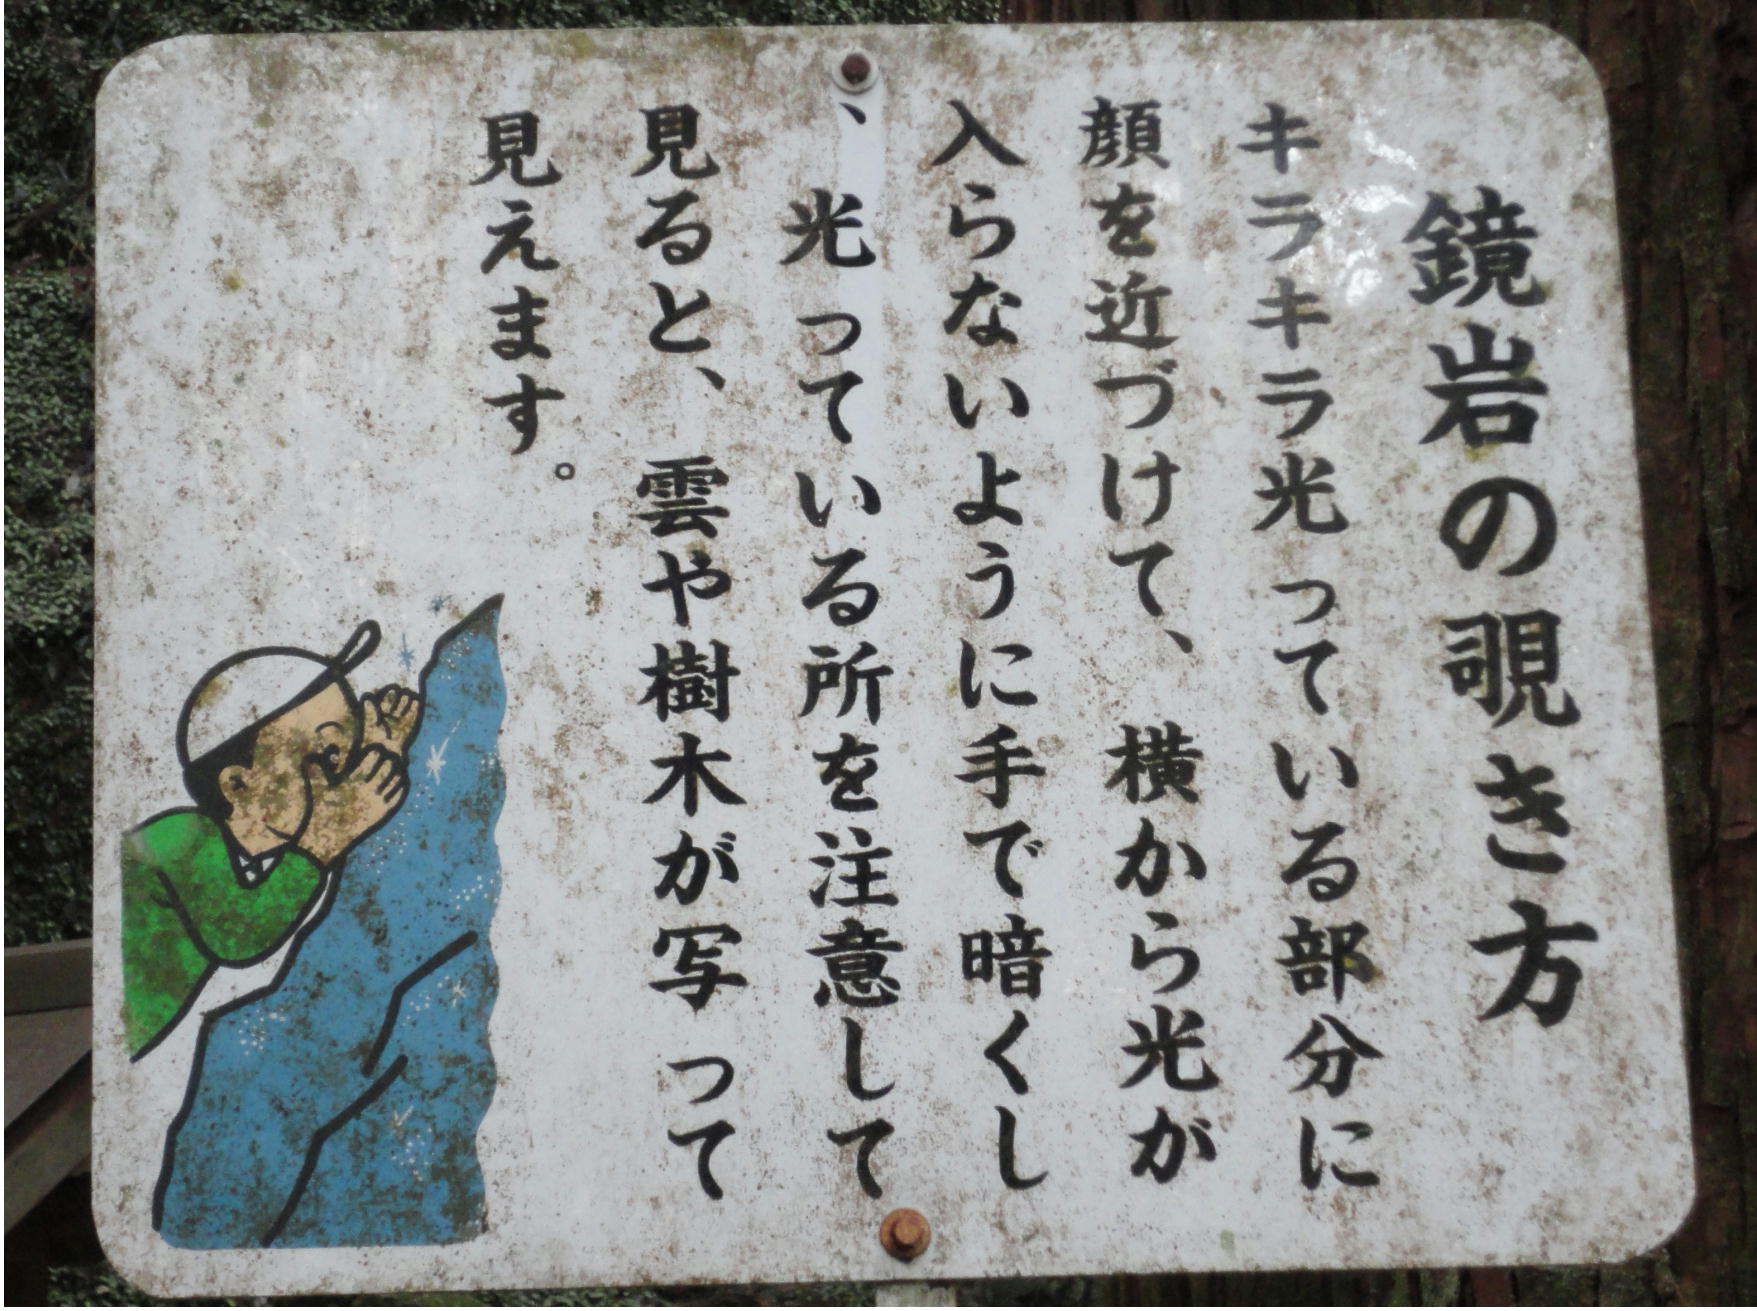 鏡岩の覗き方
キラキラ光っている部分に
顔を近づけて、横から光が
入らないように手で暗くし
、光っている所を注意して
見ると、雲や樹木が写って
見えます。